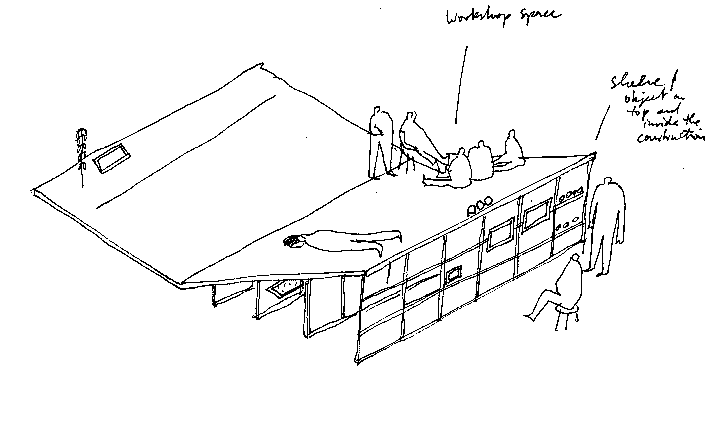 Workshop space
shelve /
object on
top and
inside the
construction